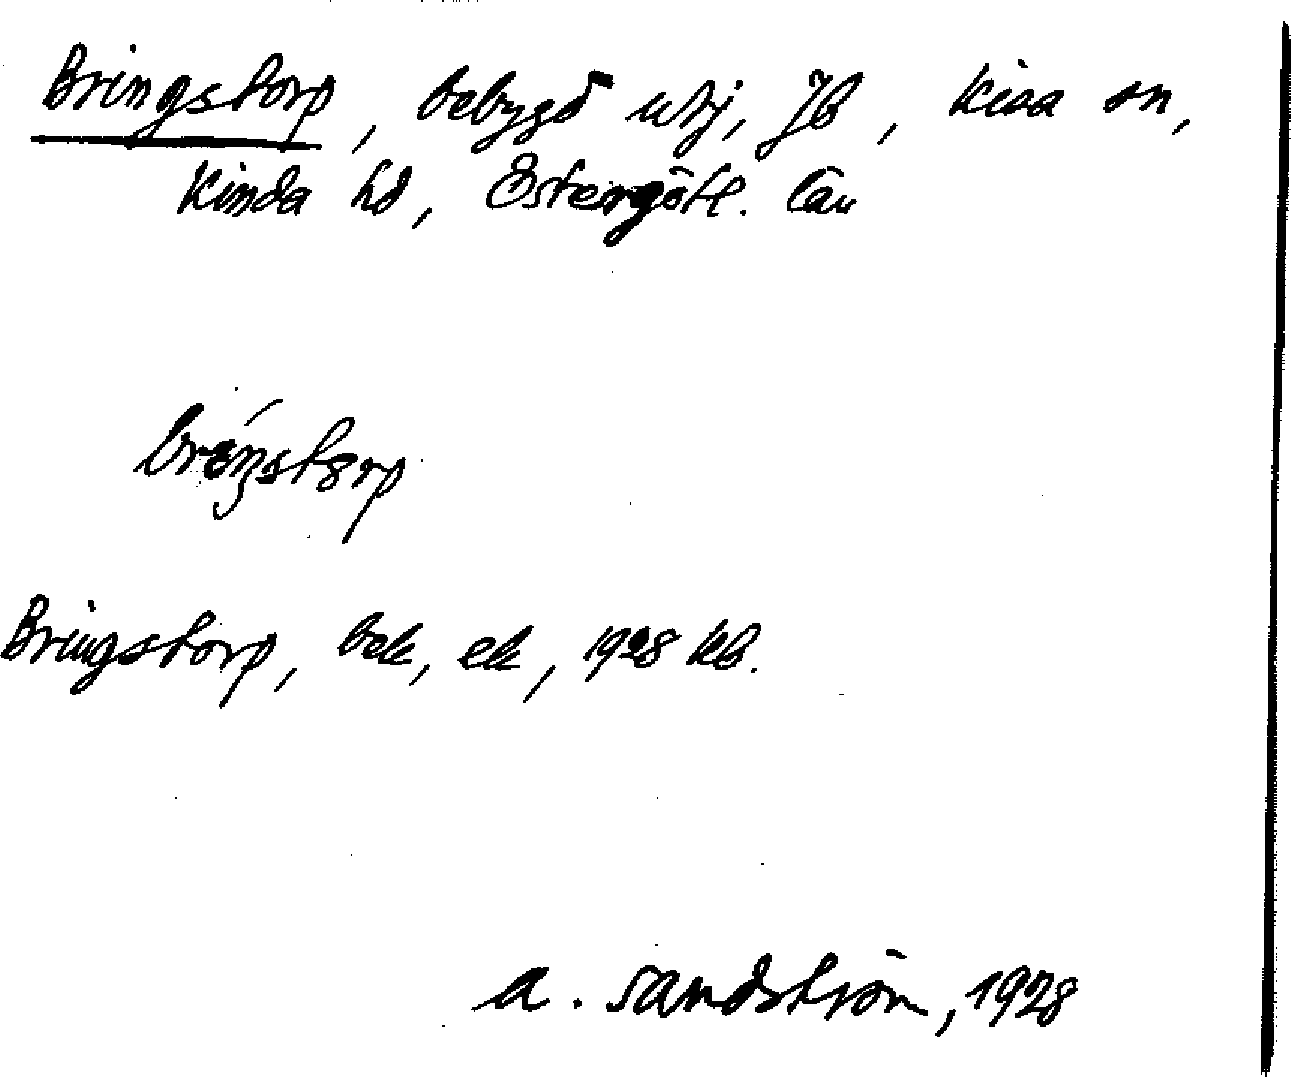 Bringstorp, bebygd utj, JB, Kisa sn,
Kinda hd, Östergötl. län
Bringstorp, bek, ek, 1928 kb.
A. Sandström, 1928